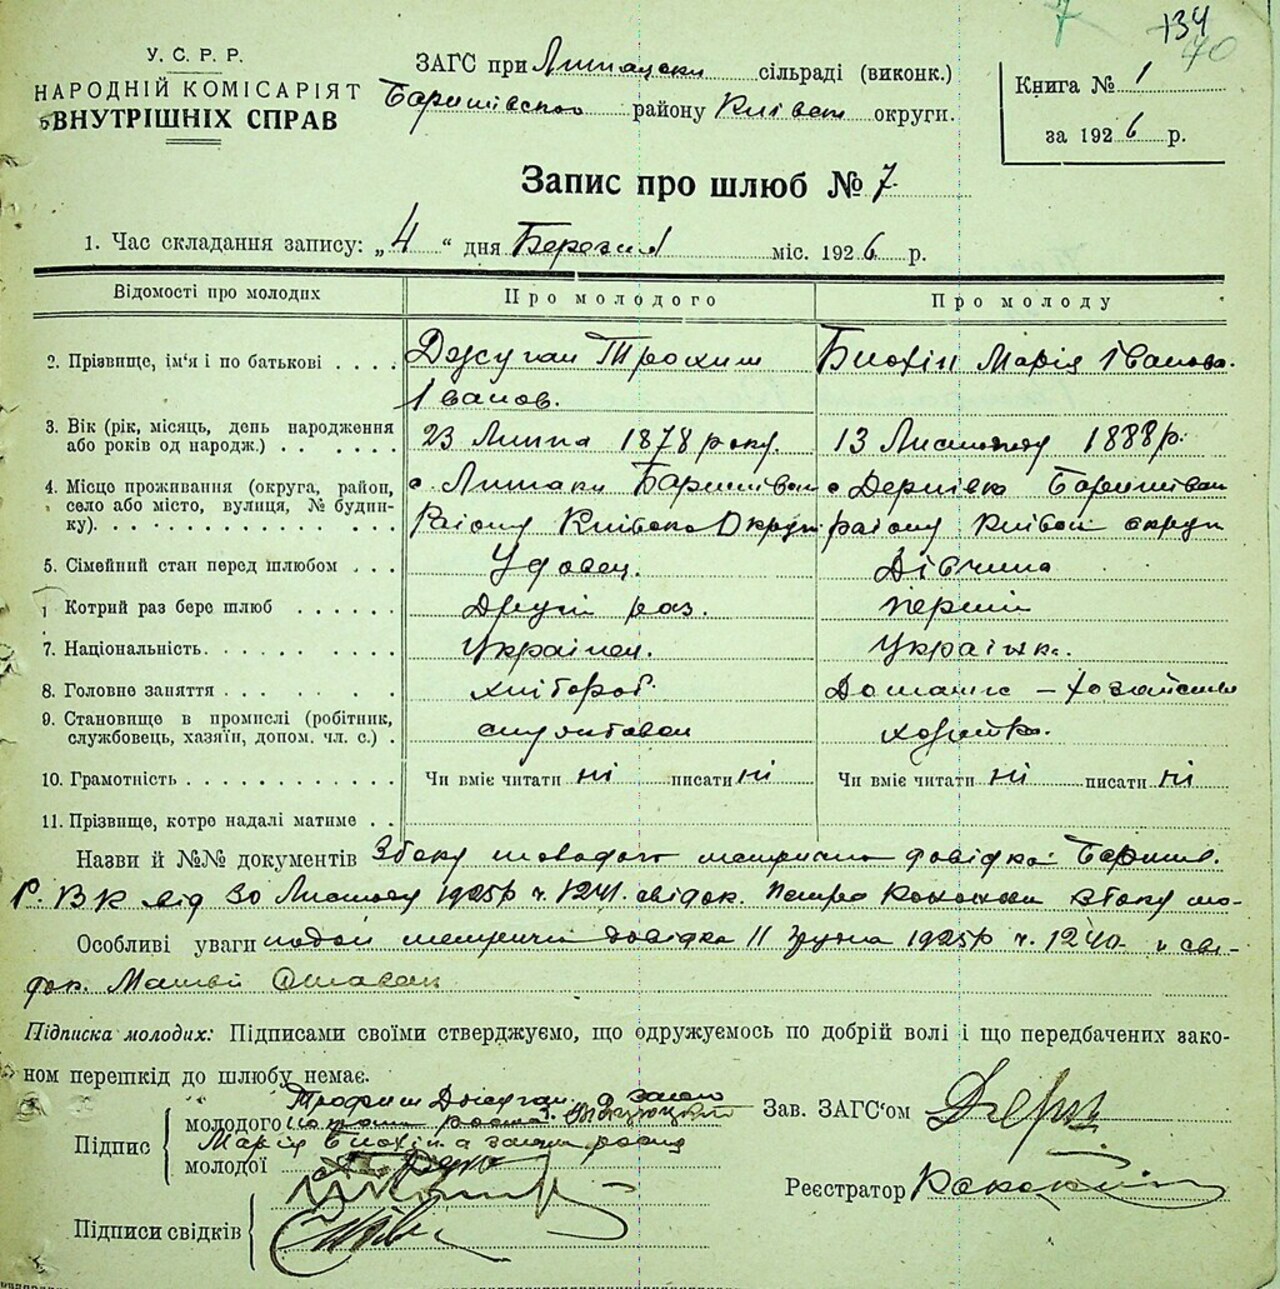 134
7
70
У. С. Р. Р.
НАРОДНІЙ КОМІСАРІЯТ
ВНУТРІШНІХ СПРАВ
ЗАГС при сільраді (виконк.)
Баришівського району Київськ округи.
Книга № 1
за 1926 р.
Запис про шлюб № 7
1. Час складання запису: „4“ дня Березня міс. 1926 р.
Відомості про молодих
Про молодого
Про молоду
2. Прізвище, ім'я і по батькові . . . .
Джуган Трохим
Іванов.
Марія Іванова.
3. Вік (рік, місяць, день народження
або років од народж.) . . . . . .
23 Липня 1878 року.
13 Листопаду 1888 р.
4. Місце проживання (округа, район,
село або місто, вулиця, № будин-
ку). . . . . . . . . . . . . .
с. Баришівськ
Району Київсько Округи
с Дернівка Баришівськ
району Київськ округи
5. Сімейний стан перед шлюбом . . .
Удовец.
Дівчина
Котрий раз бере шлюб . . . . . .
Другий раз.
перший
7. Національність. . . . . . . . . .
Українец.
Українк.
8. Головне заняття . . . . . . .
хлібороб.
Домашнє – хозяйство
9. Становище в промислі (робітник,
службовець, хазяїн, допом. чл. с.) .
хозяйка.
10. Грамотність . . . . . . . . . . .
Чи вміє читати ні писати ні
Чи вміє читати ні писати ні
11. Прізвище, котре надалі матиме . .
Назви й №№ документів Збоку молодого метрична довідка Баришів.
Р. ВК від 30 1925 р ч. 1241. свідок. Петро збоку мо-
Особливі уваги лодої метрична довідка 11 Грудня 1925 р ч. 1240 и сві-
док. Матвій
Підписка молодих: Підписами своїми стверджуємо, що одружуємось по добрій волі і що передбачених зако-
ном перешкід до шлюбу немає.
Підпис
молодого Трофим Джуган а за його
молодої Марія
Підписи свідків
Зав. ЗАГС'ом
Реєстратор